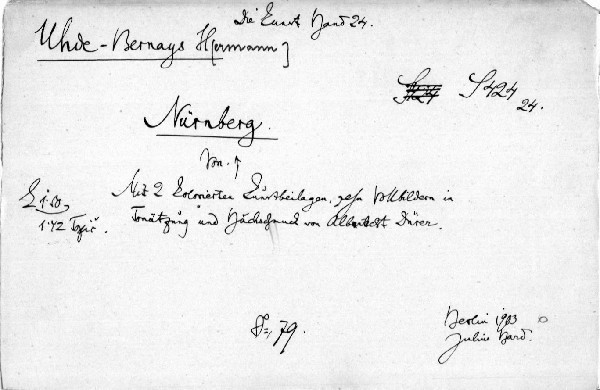 Die Kunst Band 24.
Uhde-Bernays H[ermann]
S 424
24.
Nürnberg.
Von ↑
Mit 2 kolorierten Kunstbeilagen, zehn Vollbildern in
Tonätzung und Buchschmuck von Albrecht Dürer.
172
8°, 79.
Berlin 1903
Julius Bard.